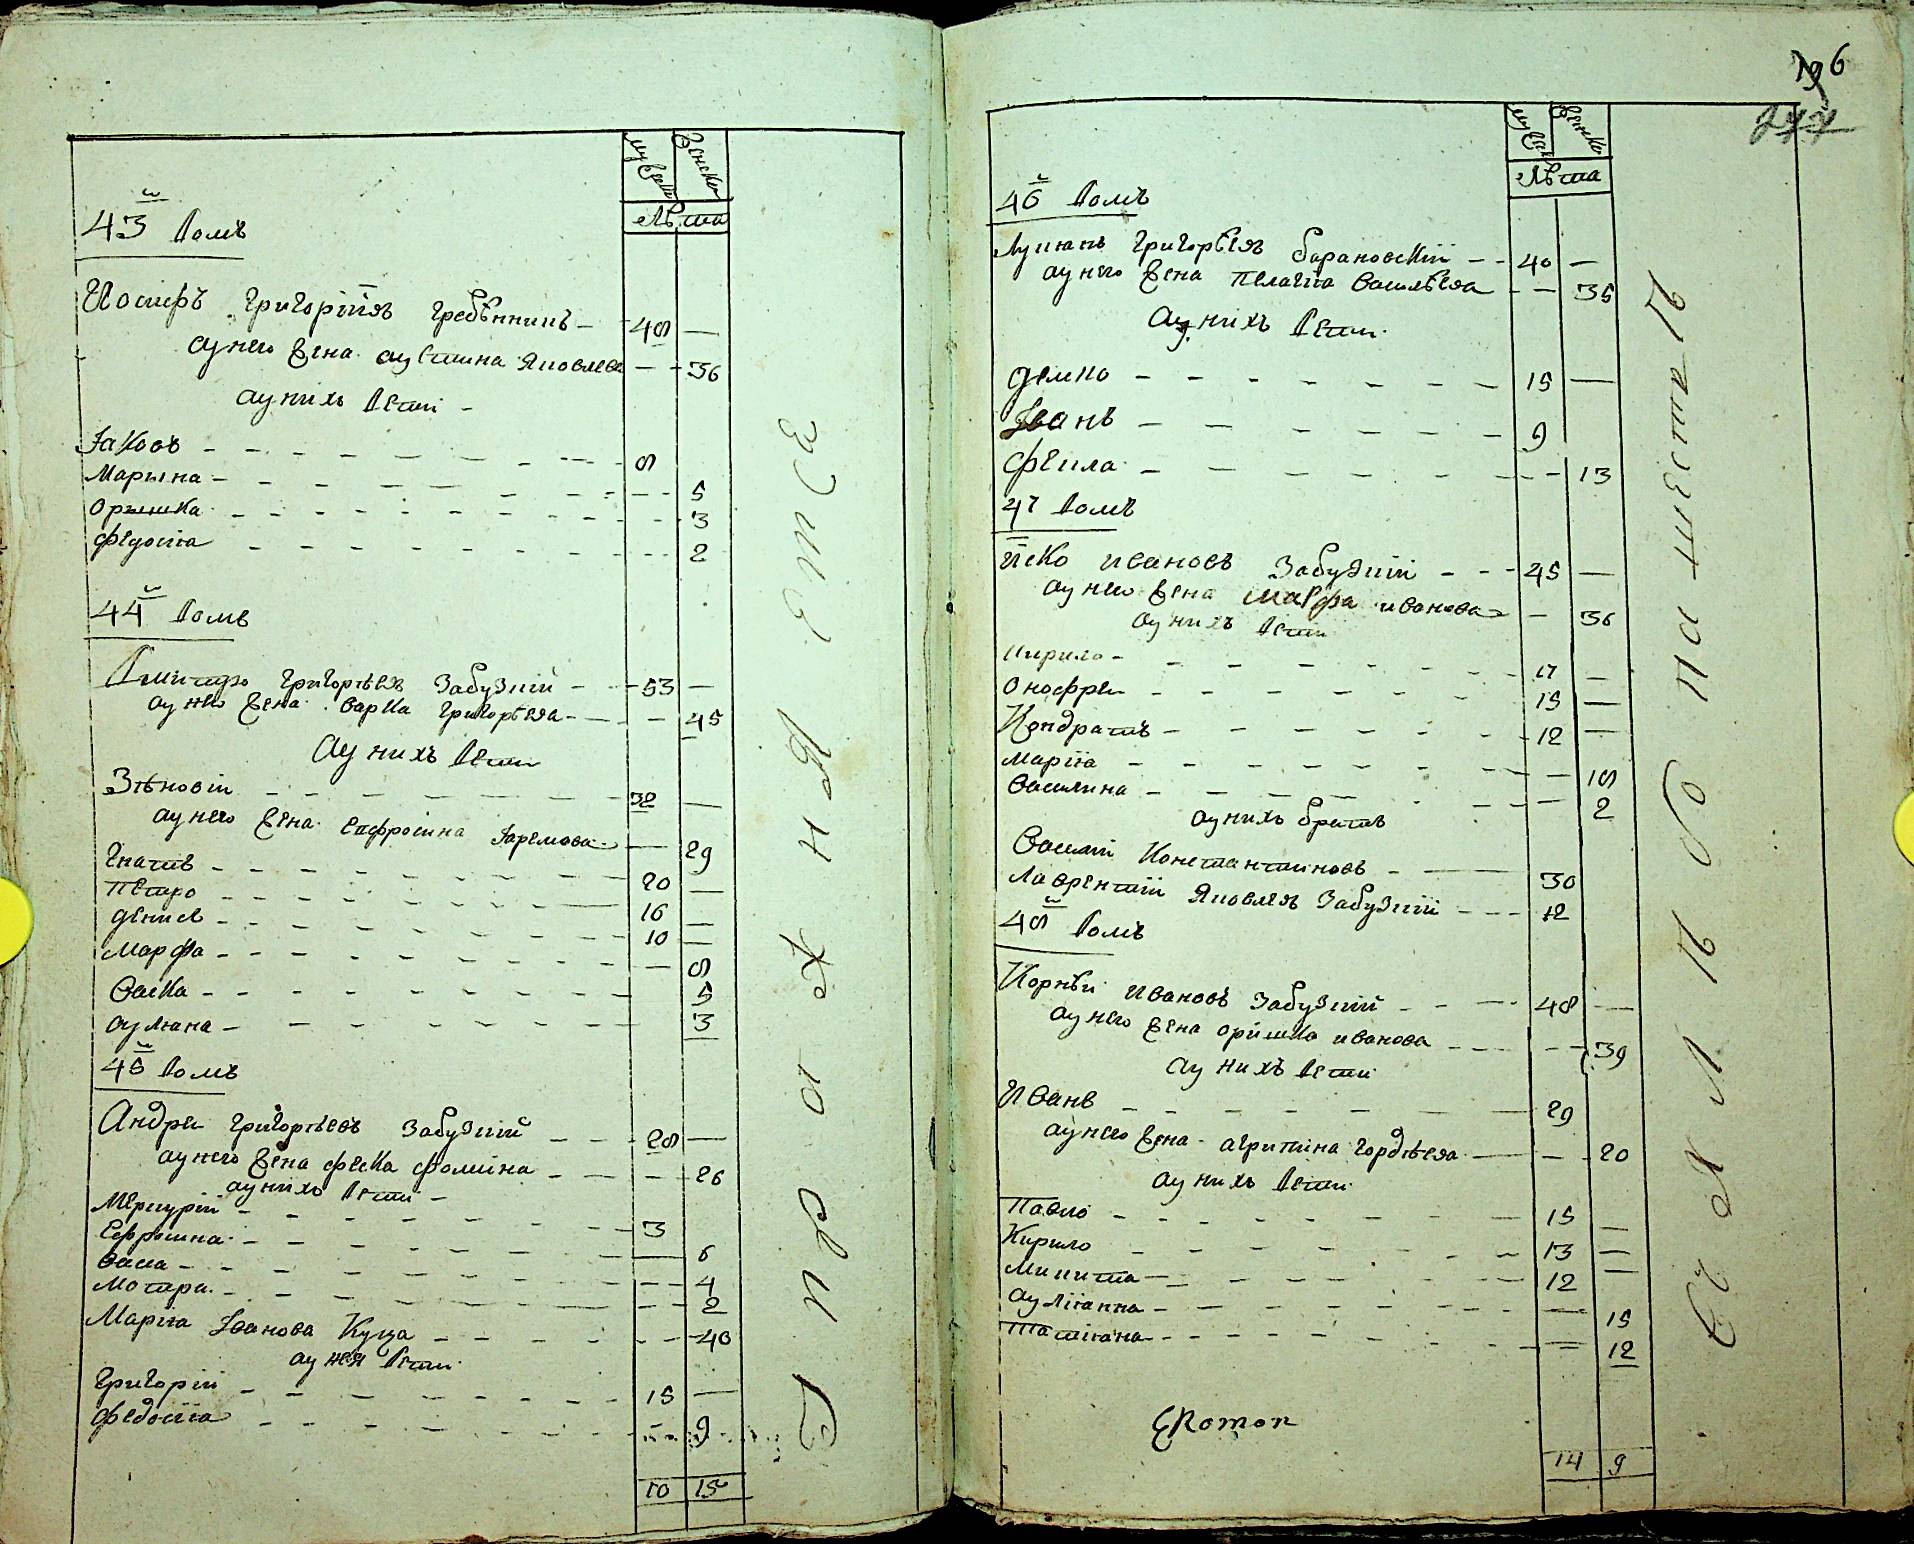 мужеска женска
лѣта
43й домъ
Иосифъ Григоріивъ Гребѣнникъ 48
а у него жена аустина Яковлева 36
а у нихъ дети
Іаковъ 8
Марына 5
Орышка 3
Федосіа 2
44й домъ
Дмитро Григорьевъ Забузкій 53
а у него жена Варка Григорьева 45
а у нихъ дети
Зѣновій 32
а у него жена Ефросина Яремова 29
Гнатъ 20
Петро 16
Денисъ 10
Марфа 8
Васка 5
аулiана 3
45й домъ
Андрей Григорьевъ Забузкій 28
а у него жена феска фомина 26
а у нихъ дети
Меркурій 3
Ефросина 6
Васса 4
Мотра 2
Маріа Іванова Куца 40
а у нея дети
Григорій 15
Федосіа 9
10 15
196
277
мужеска женска
лѣта
46й домъ
Лукіанъ Григорьевъ Барановскій 40
а у него жена Пелагіа Васильева 35
а у нихъ дети
Демко 15
Іванъ 9
Фекла 13
47 домъ
Іско Ивановъ Забузкій 45
а у него жена Марфа Иванова 36
а у нихъ дети
Кирило 17
Онофрей 15
Кондратъ 12
Маріа 18
Василина 2
а у нихъ братъ
Василій Константиновъ 30
Лаврентій Яковлевъ Забузкій 12
48й домъ
Корнѣй Ивановъ Забузкій 48
а у него жена Орішка Иванова 39
а у нихъ дети
Иванъ 29
а у него жена агрипина Гордѣева 20
а у нихъ дети
Павло 15
Кирило 13
Микита 12
аулiанна 15
Татіана 12
14 9